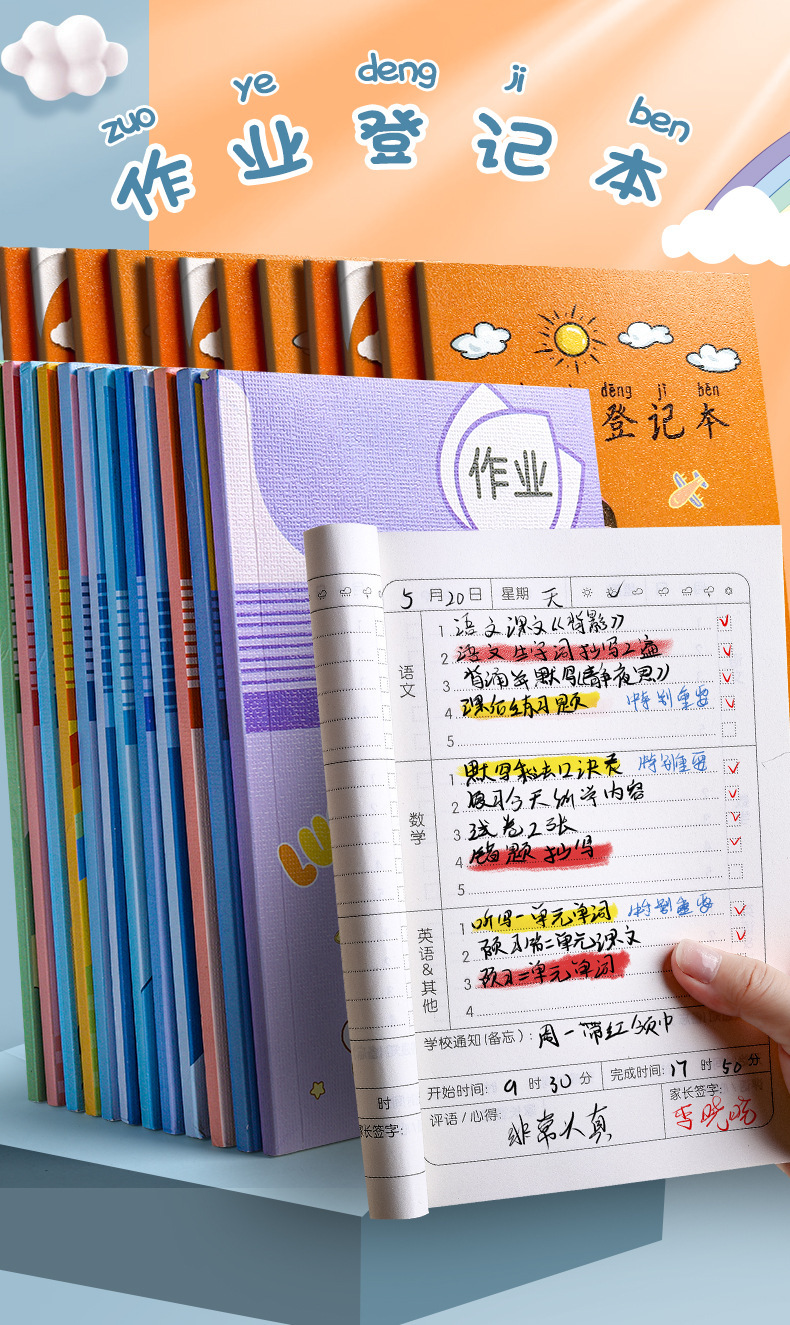 zuo ye deng ji ben
作业登记本
dēng jì běn
登记本
作业
LU
5月20日 星期 天
语文
1 语文课文《背影》
2 语文生字词抄写2遍
3 背诵并默写《静夜思》
4 课后练习题 特别重要
5
数学
1 默写乘法口诀表 特别重要
2 复习今天所学内容
3 试卷2张
4 错题抄写
5
英语&其他
1 听写一单元单词 特别重要
2 预习第二单元课文
3 预习二单元单词
4
学校通知(备忘): 周一带红领巾
时
开始时间: 9时30分 完成时间: 17时50分
家长签字:
评语/心得: 非常认真
家长签字: 李晓晓